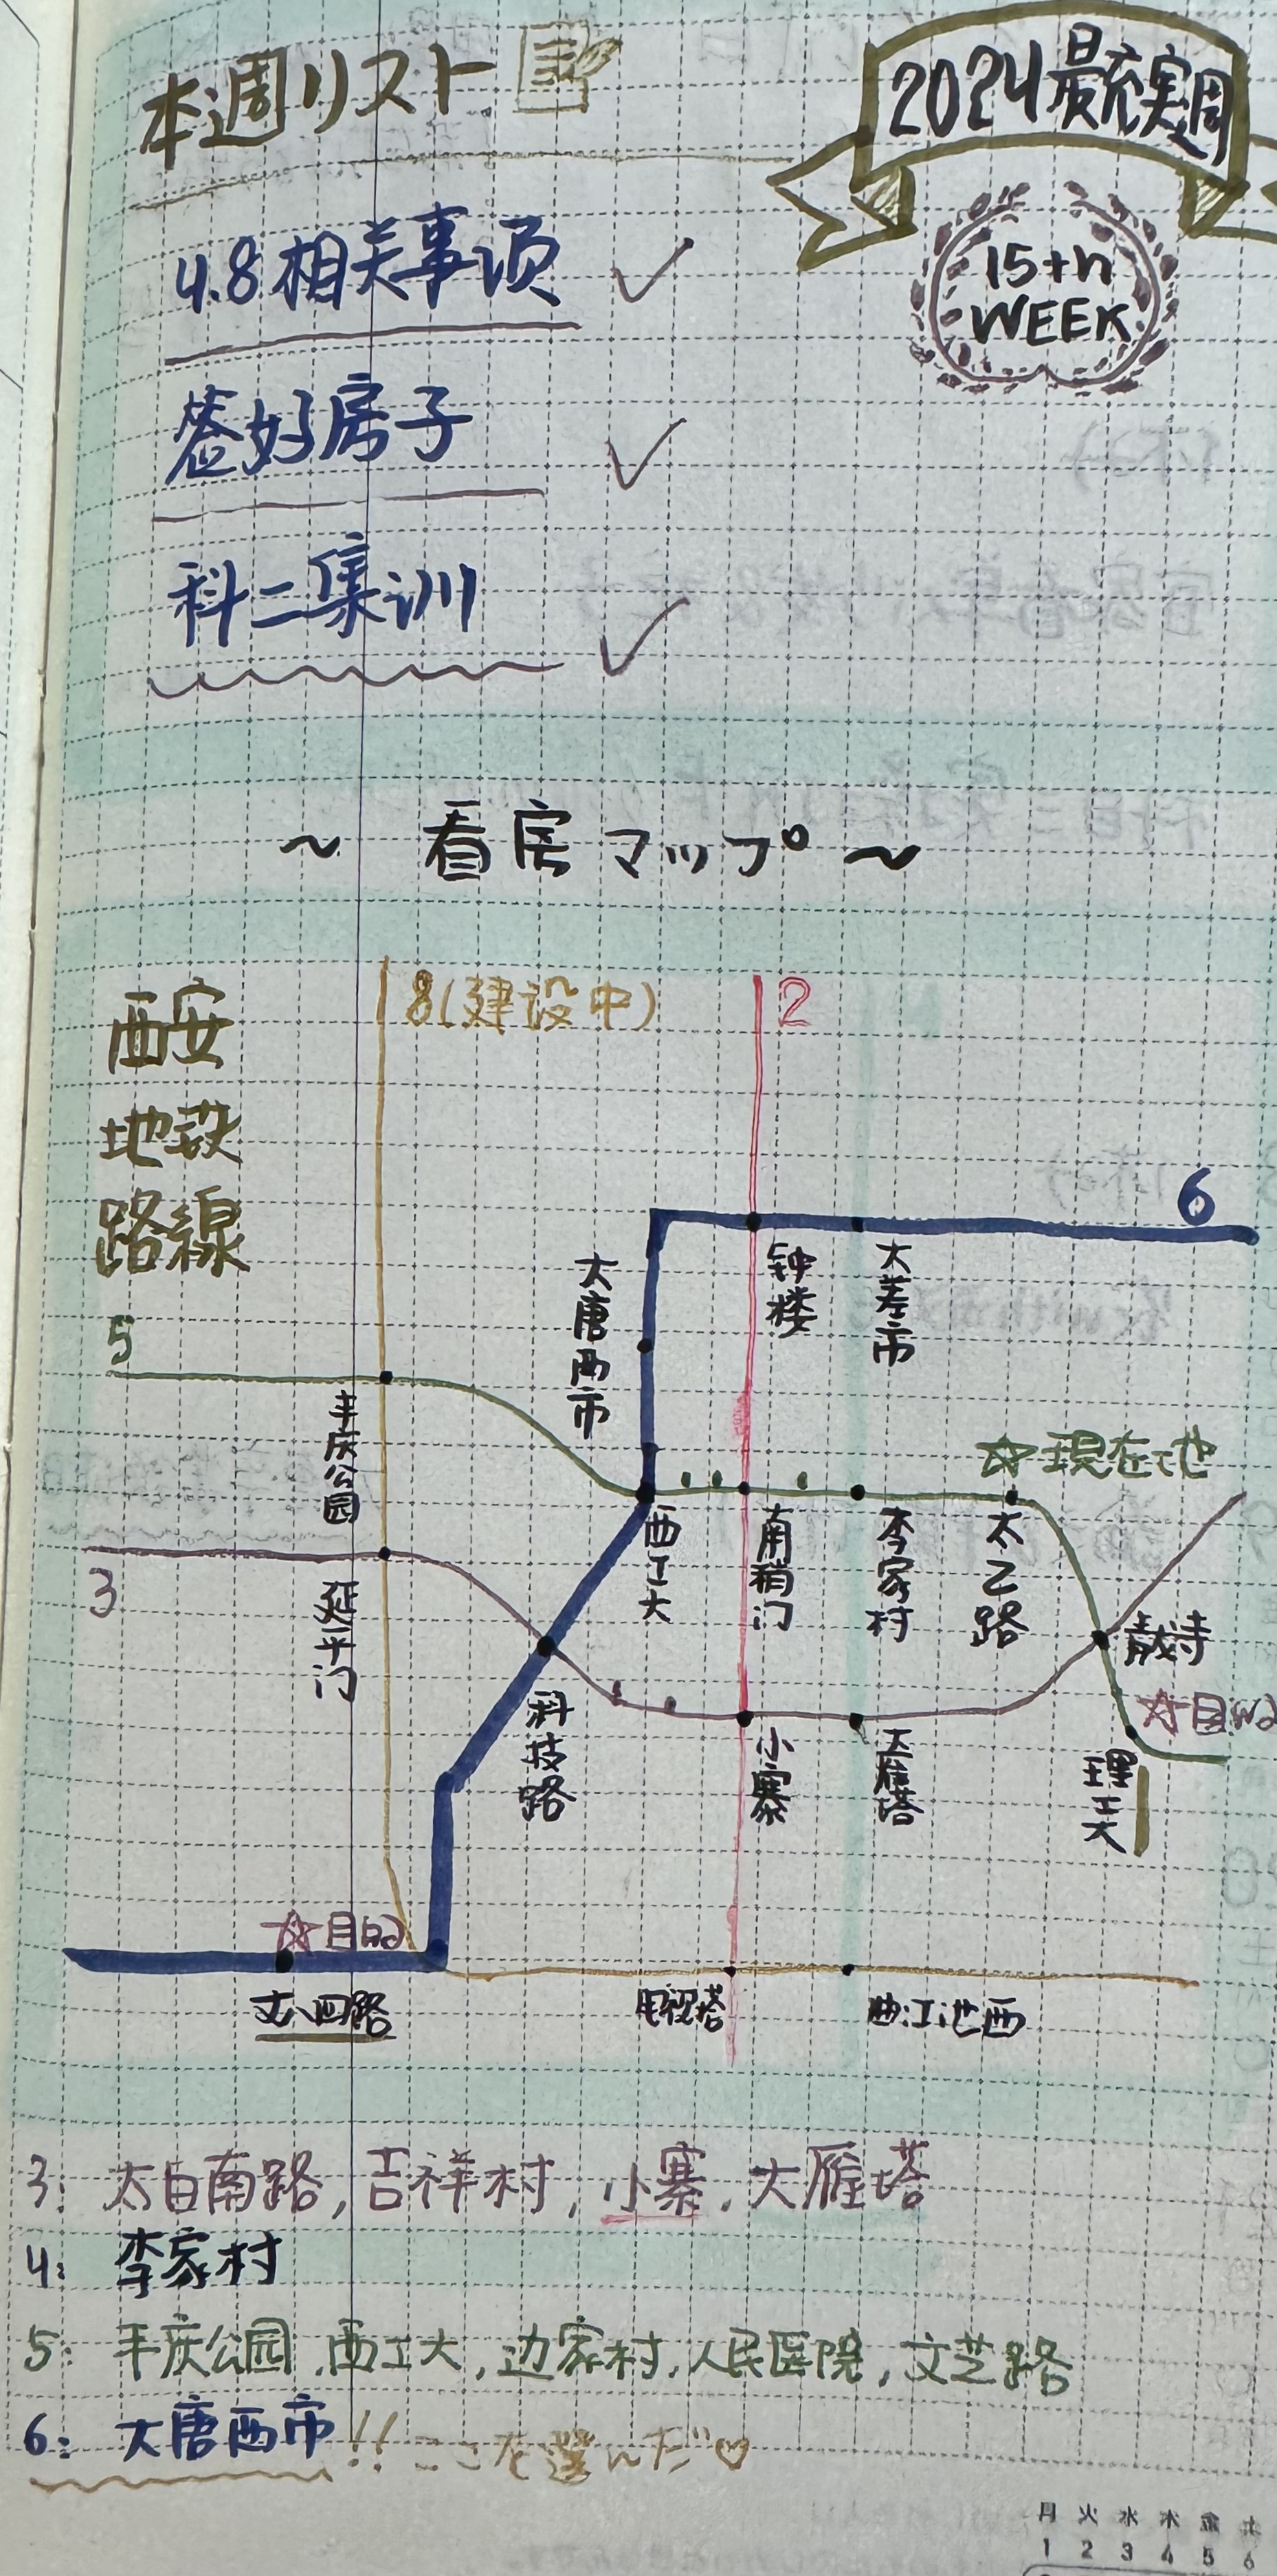 本週リスト
2024最充実周
15th
WEEK
4.8相关事项
签好房子
科二集训
~ 看房マップ ~
西安
地鉄
路線
8(建设中)
2
6
5
3
大唐西市
钟楼
大差市
丰庆公园
☆現在地
西工大
南稍门
李家村
太乙路
延平门
青龙寺
科技路
小寨
大雁塔
☆目的
理工大
☆目的
丈八四路
电视塔
曲江池西
3: 太白南路,吉祥村,小寨,大雁塔
4: 李家村
5: 丰庆公园,西工大,边家村,人民医院,文艺路
6: 大唐西市!!ここを選んだ♡
月 火 水 木 金 土
1 2 3 4 5 6